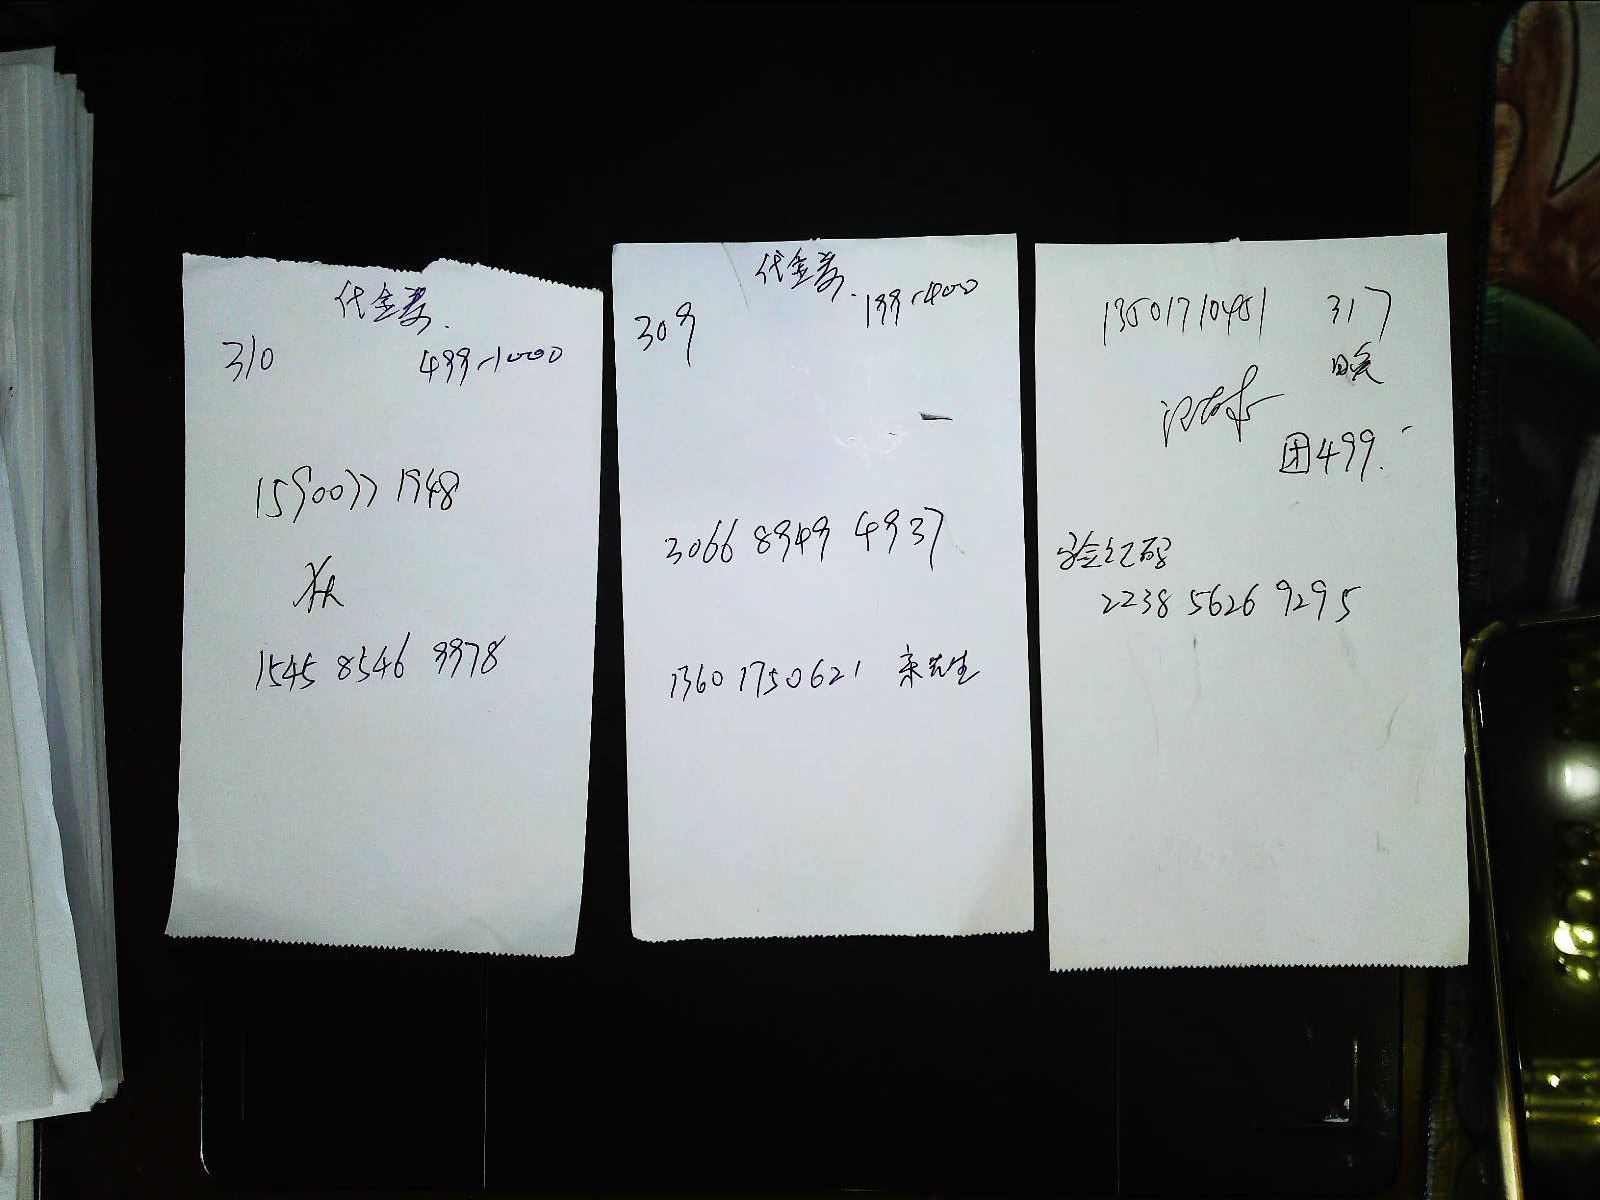 代金券.
310
499-1000
15900771948
1545 8546 9978
代金券.
199-400
309
3066 8949 4937
1360 1750621 宋先生
13501710451 317
晚
团499.
验证码
2238 5626 9295